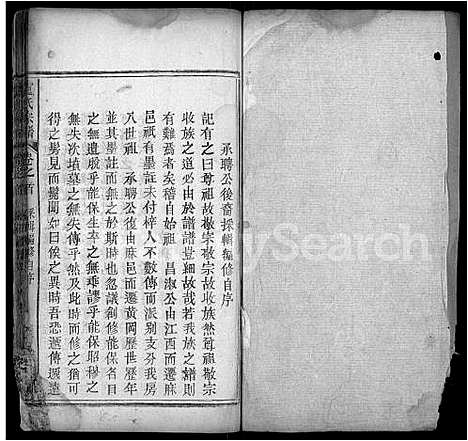 承聘公後裔採輯編修自序
記有之曰尊祖故敬宗敬宗故收族然尊祖敬宗
收族之道必由於譜譜豈細故哉若我族之譜則
有難爲者矣稽自始祖 昌淑公由江西而遷麻
邑祇有墨註未付梓人不數傳而派别支分我房
八世祖 承聘公復由麻而遷黃岡歷世歷年
並其墨註而無之於斯時也忽議創修能保名目
之無遺脱乎能保生卒之無乖謬乎能保昭穆之
無失次墳墓之無失傳乎然及此時而修之猶可
得之見而髣髴聞如曰俟之異時吾恐遞傳遞遠
氏宗譜
卷之首
採輯編修自序
FamilySearch